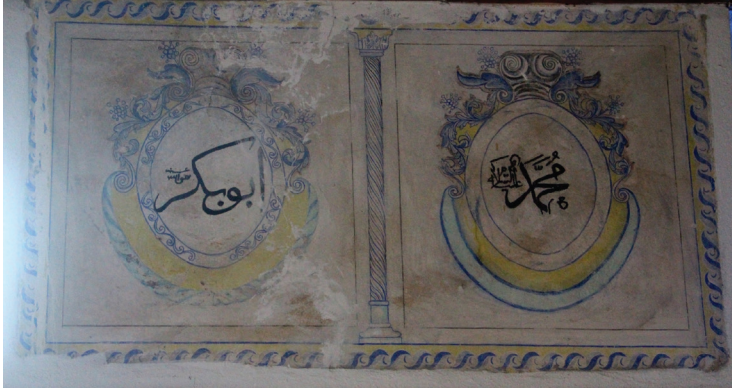 محمد
ابوبكر